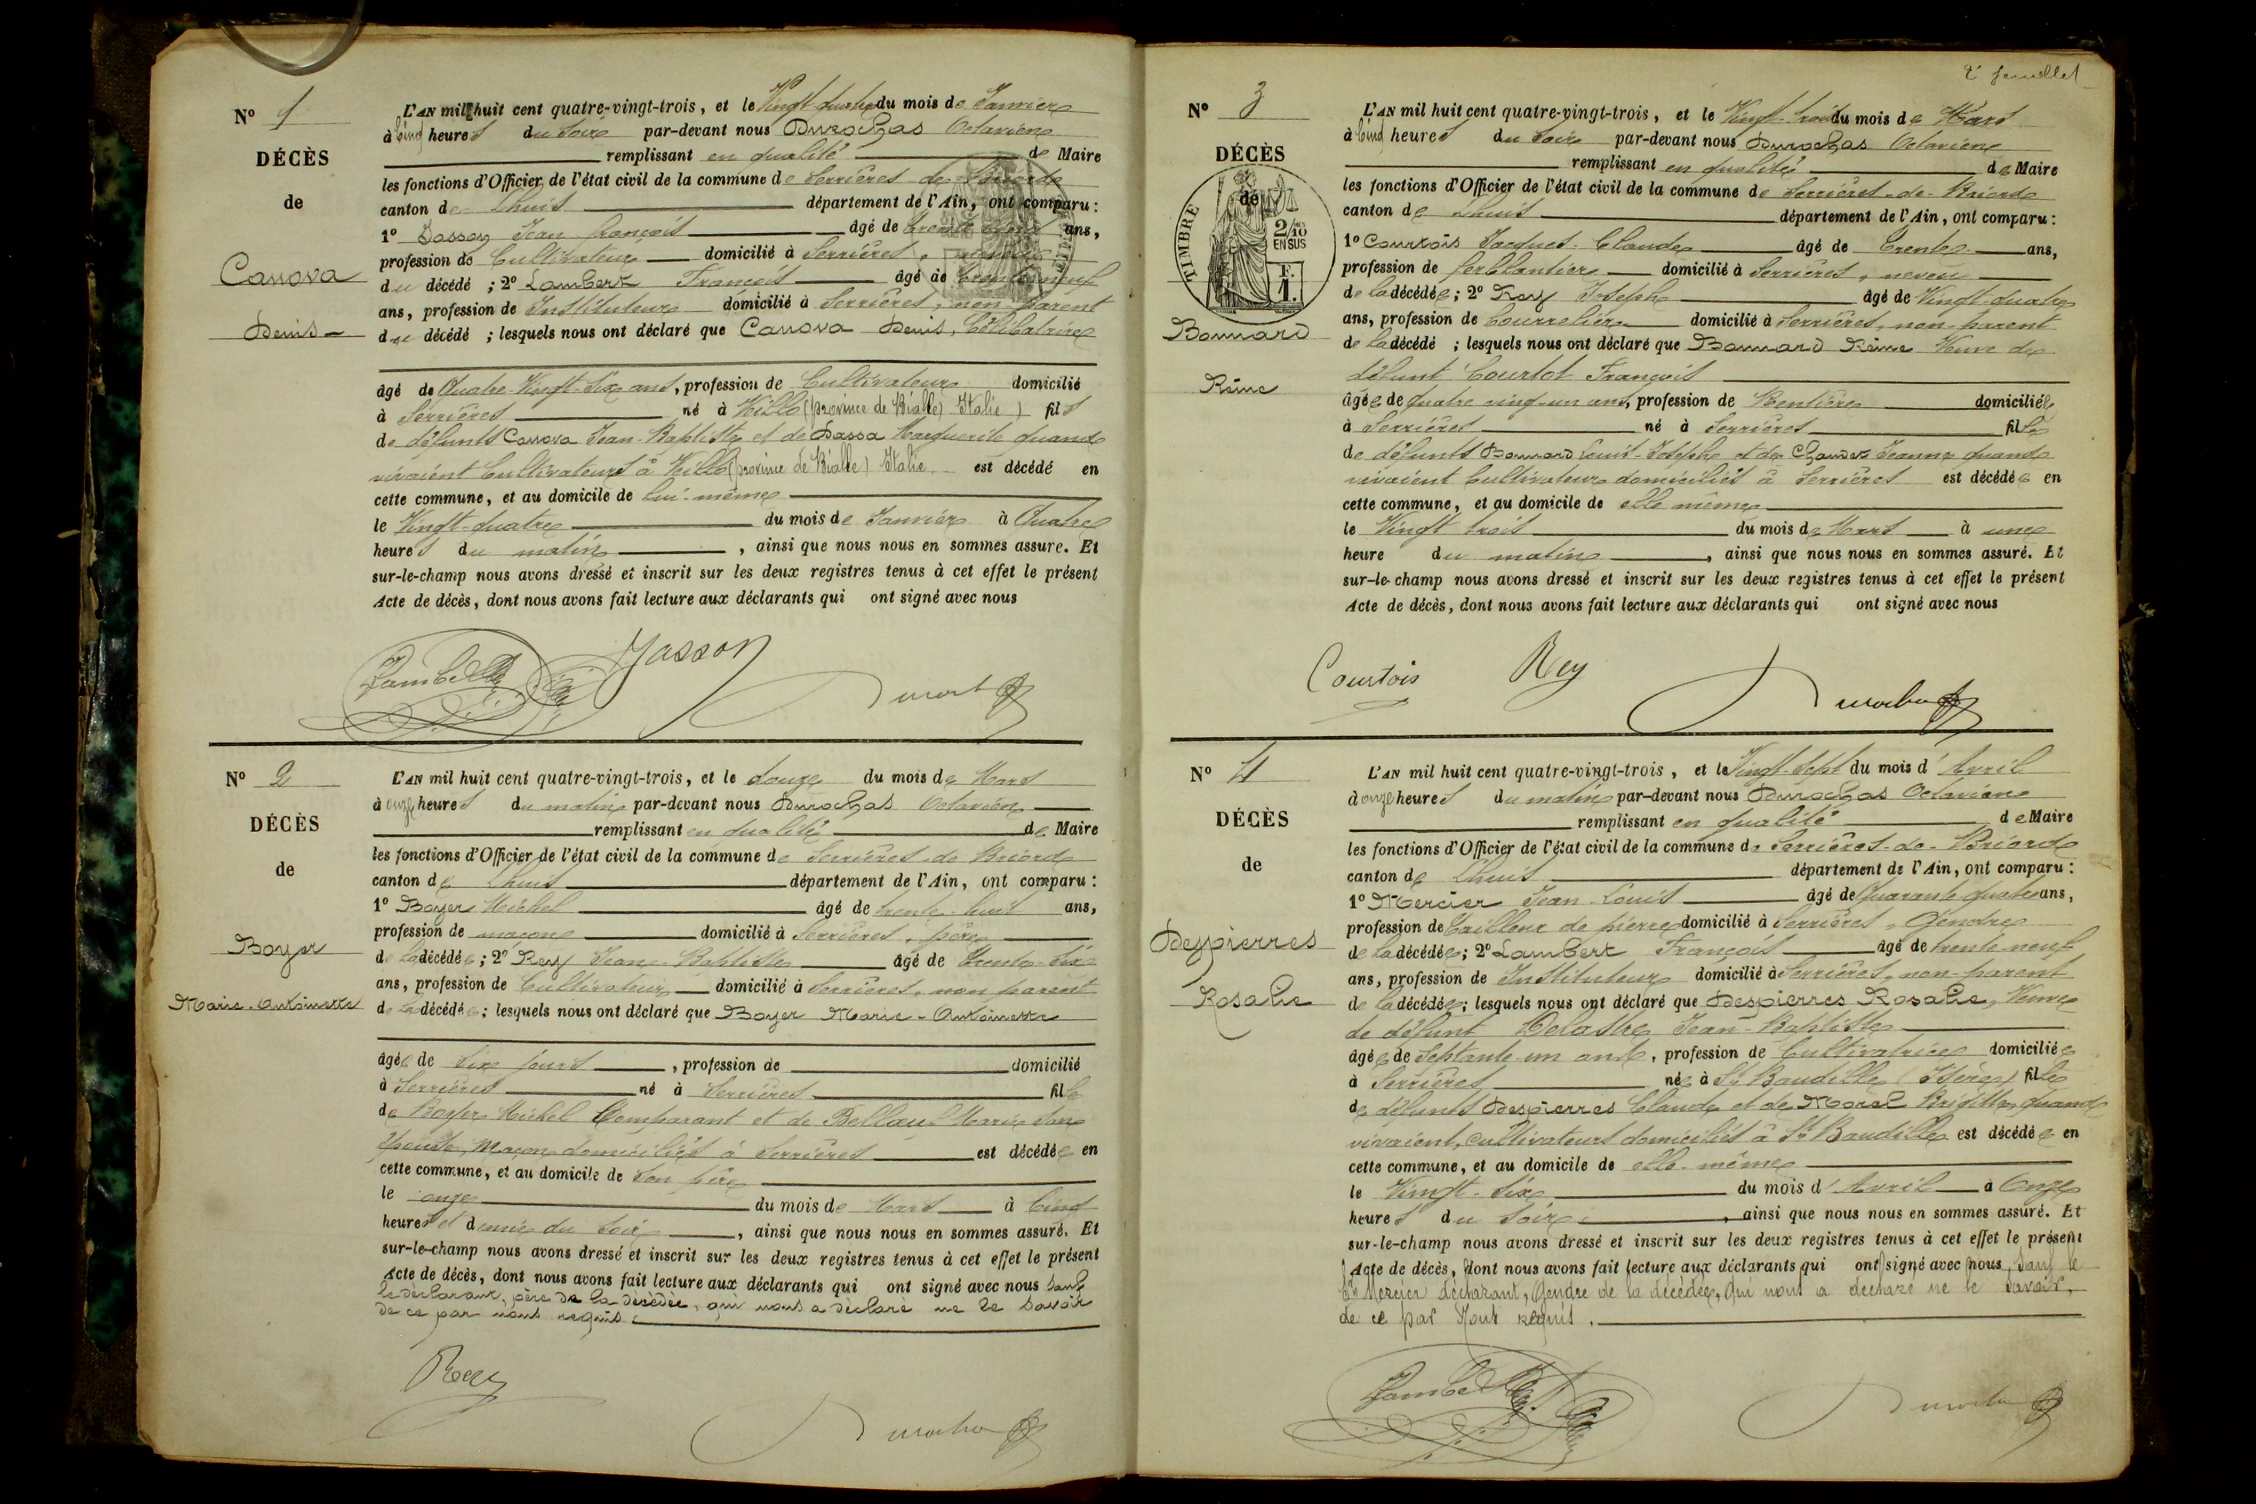 Nº 1
DÉCÈS
de
Canova
Denis
L'AN mil huit cent quatre-vingt-trois, et le Vingt-quatre du mois de Janvier
à Cinq heures du soir par-devant nous Durochas Octavien
remplissant en qualité de Maire
les fonctions d'Officier de l'état civil de la commune de Serrières de Briord
canton de Lhuis département de l'Ain, ont comparu :
1º Jasson Jean françois âgé de trente ans,
profession de Cultivateur domicilié à Serrières,
du décédé ; 2º Lambert François âgé de trente-neuf
ans, profession de Instituteur domicilié à Serrières, non parent
du décédé ; lesquels nous ont déclaré que Canova Denis, Célibataire
âgé de Quatre-Vingt-Six ans, profession de Cultivateur domicilié
à Serrières né à (province de Bialle) Italie ) fils
de défunts Canova Jean-Baptiste et de Dassa Marguerite quand
vivaient Cultivateurs à (province de Bialle) Italie est décédé en
cette commune, et au domicile de lui-même
le Vingt-quatre du mois de Janvier à Quatre
heures du matin , ainsi que nous nous en sommes assuré. Et
sur-le-champ nous avons dressé et inscrit sur les deux registres tenus à cet effet le présent
Acte de décès, dont nous avons fait lecture aux déclarants qui ont signé avec nous
Lambert Jasson Durochas
Nº 2
DÉCÈS
de
Boyer
Marie-Antoinette
L'AN mil huit cent quatre-vingt-trois, et le douze du mois de Mars
à onze heures du matin par-devant nous Durochas Octavien
remplissant en qualité de Maire
les fonctions d'Officier de l'état civil de la commune de Serrières-de-Briord
canton de Lhuis département de l'Ain, ont comparu :
1º Boyer Michel âgé de trente-huit ans,
profession de maçon domicilié à Serrières, père
de la décédée ; 2º Rey Jean-Baptiste âgé de Trente-Six
ans, profession de Cultivateur domicilié à Serrières, non parent
de la décédée ; lesquels nous ont déclaré que Boyer Marie-Antoinette
âgée de Six jours , profession de domicilié
à Serrières né à Serrières fille
de Boyer Michel Comparant et de Marie son
épouse, Maçon domiciliés à Serrières est décédée en
cette commune, et au domicile de son père
le onze du mois de Mars à Cinq
heures et demie du soir , ainsi que nous nous en sommes assuré. Et
sur-le-champ nous avons dressé et inscrit sur les deux registres tenus à cet effet le présent
Acte de décès, dont nous avons fait lecture aux déclarants qui ont signé avec nous sauf
le déclarant, père de la décédée, qui nous a déclaré ne le savoir
de ce par nous requis.
Rey Durochas
2e feuillet
Nº 3
DÉCÈS
de
TIMBRE
2/10
EN SUS
F.
1.
Bonnard
Reine
L'AN mil huit cent quatre-vingt-trois, et le Vingt-trois du mois de Mars
à Cinq heures du soir par-devant nous Durochas Octavien
remplissant en qualité de Maire
les fonctions d'Officier de l'état civil de la commune de Serrières-de-Briord
canton de Lhuis département de l'Ain, ont comparu :
1º Courtois Jacques-Claude âgé de Trente ans,
profession de ferblantier domicilié à Serrières, neveu
de la décédée ; 2º Rey Joseph âgé de Vingt-quatre
ans, profession de Bourrelier domicilié à Serrières, non parent
de la décédé ; lesquels nous ont déclaré que Bonnard Reine Veuve de
défunt Courtot François
âgée de quatre vingt-un ans, profession de Rentière domiciliée
à Serrières né à Serrières fille
de défunts Bonnard Louis-Joseph et de Jeanne quand
vivaient Cultivateurs domiciliés à Serrières est décédée en
cette commune, et au domicile de elle même
le Vingt trois du mois de Mars à une
heure du matin , ainsi que nous nous en sommes assuré. Et
sur-le-champ nous avons dressé et inscrit sur les deux registres tenus à cet effet le présent
Acte de décès, dont nous avons fait lecture aux déclarants qui ont signé avec nous
Courtois Rey Durochas
Nº 4
DÉCÈS
de
Despierres
Rosalie
L'AN mil huit cent quatre-vingt-trois, et le Vingt-Sept du mois d'Avril
à onze heures du matin par-devant nous Durochas Octavien
remplissant en qualité de Maire
les fonctions d'Officier de l'état civil de la commune de Serrières-de-Briord
canton de Lhuis département de l'Ain, ont comparu :
1º Mercier Jean-Louis âgé de Quarante quatre ans,
profession de Tailleur de pierre domicilié à Serrières, Gendre
de la décédée ; 2º Lambert François âgé de trente-neuf
ans, profession de Instituteur domicilié à Serrières, non-parent
de la décédée ; lesquels nous ont déclaré que Despierres Rosalie, Veuve
de défunt Jean-Baptiste
âgée de Septante-un ans, profession de Cultivatrice domiciliée
à Serrières née à St Baudille (Isère) fille
de défunts Despierres Claude et de Morel Brigitte, quand
vivaient, cultivateurs domiciliés à St Baudille est décédée en
cette commune, et au domicile de elle-même
le Vingt-Six du mois d'Avril à Onze
heures du soir , ainsi que nous nous en sommes assuré. Et
sur-le-champ nous avons dressé et inscrit sur les deux registres tenus à cet effet le présent
Acte de décès, dont nous avons fait lecture aux déclarants qui ont signé avec nous, sauf le
Sr Mercier déclarant, Gendre de la décédée, qui nous a déclaré ne le savoir,
de ce par Nous requis.
Lambert Durochas